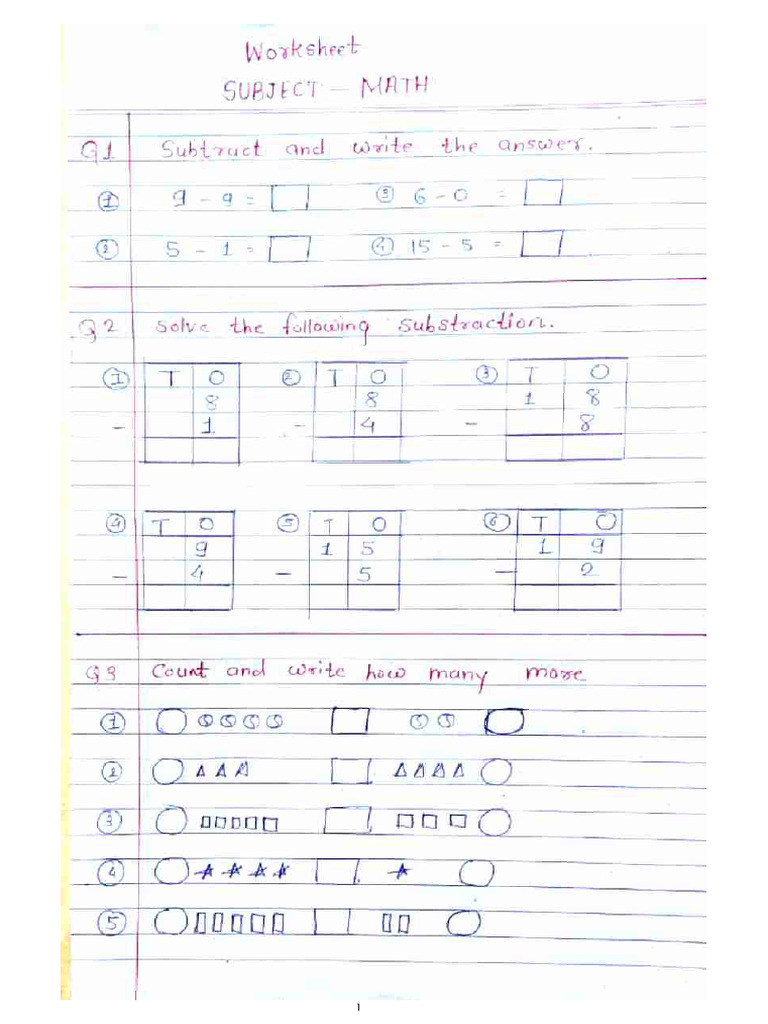 Worksheet
SUBJECT - MATH
Q1 Subtruct and write the answer.
① 9 - 9 = ③ 6 - 0 =
② 5 - 1 = ④ 15 - 5 =
Q2 Solve the following substraction.
① T O ② T O ③ T O
8 8 1 8
- 1 - 4 - 8
④ T O ⑤ T O ⑥ T O
9 1 5 1 9
- 4 - 5 - 2
Q3 Count and write how many more
①
②
③
④
⑤
1